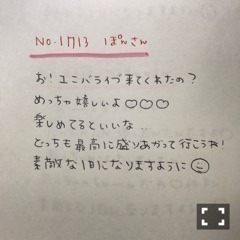 No.1713 ぽんさん
お!ユニバライブ来てくれたの?
めっちゃ嬉しいよ♡♡♡
楽しめてるといいな..
とっちも最高に盛りあがって行こうね!
素敵な1日になりますように☺